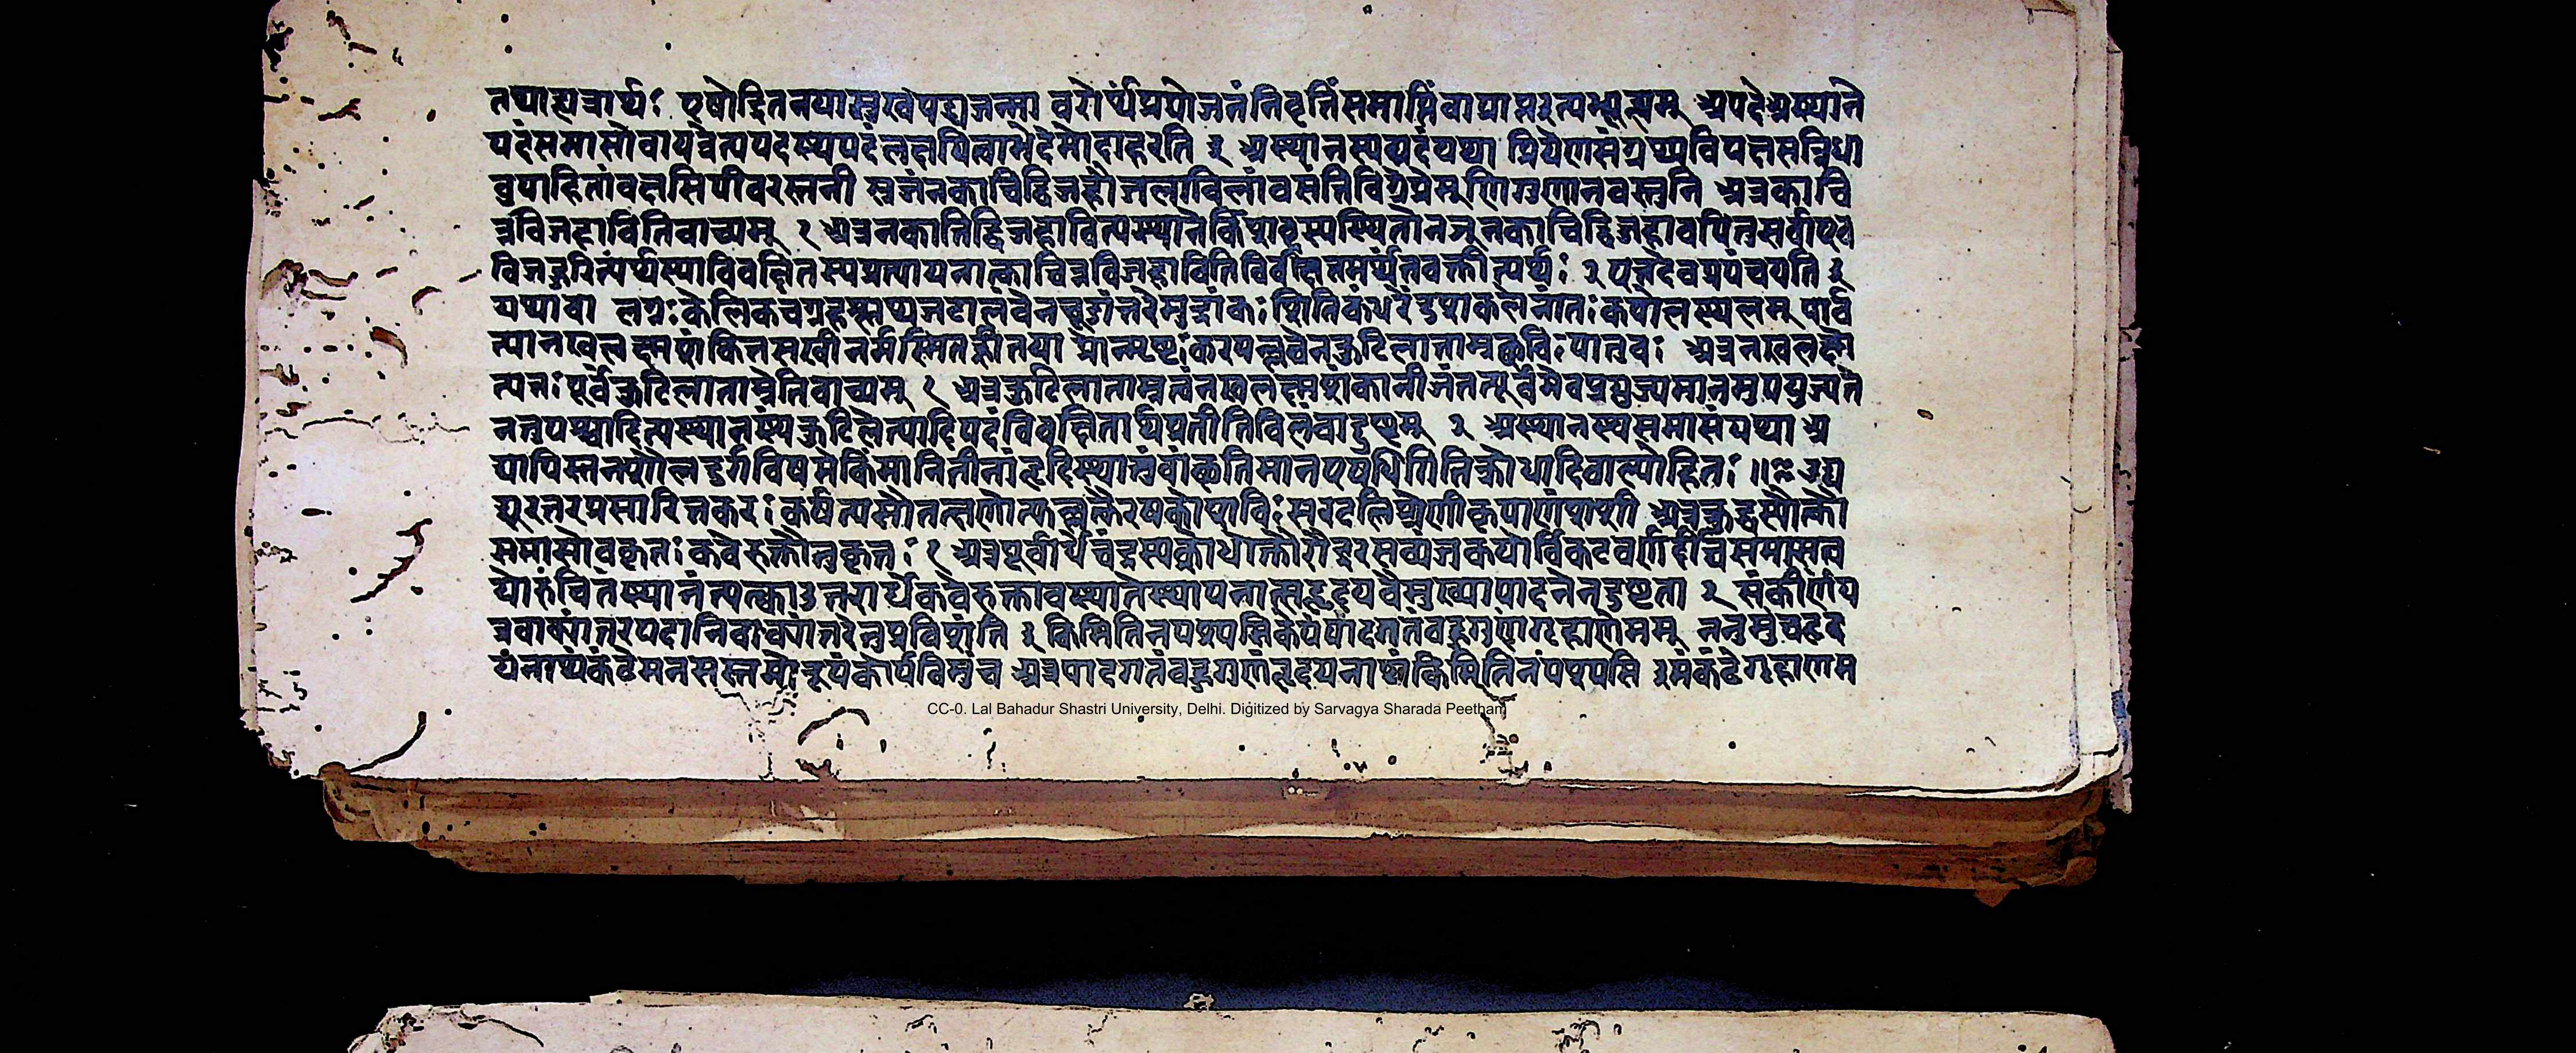 तथाह्यत्रार्थः पुषोद्गितनयास्तुखपद्मजन्मा वरोर्थप्रयोजनंनिवृत्तिंसमाप्तिंवाप्राप्तइत्यभ्यूह्यम् अपदेअस्थाने
पदंसमासोवायत्रेत्यपदस्थपदंलक्षयित्वाभेदेनोदाहरति ३ अस्थानस्थपदंयथा प्रियेणसंग्रथ्यविपक्षसन्निधा
वुपाहितांवक्षसिपीवरस्तनी स्रजंनकाचिद्विजहौजलाविलांवसंतिहिप्रेम्णिगुणानवस्तुनि अत्रकाचि
न्नविजहावितिवाच्यम् १ अत्रनकाचिद्विजहावित्यस्थानेकिंपावृत्यस्थितोनञ्नकाचिद्विजहावपितुसर्वाएव
विजहुरित्यर्थस्याविवक्षितस्यप्रत्यायनात्काचिन्नविजहावितिविवक्षितमर्थंनवक्तीत्यर्थः २ एतदेवप्रपंचयति ३
यथावा लग्नःकेलिकचग्रहश्लथजटालंबेननिद्रांतरेमुद्रांकः शितिकंधरेंदुशकलेनांतःकपोलस्थलम् पार्व
त्यानखलक्ष्मशंकितसखीनर्मस्मितह्रीतया प्रोन्मृष्टःकरपल्लवेनकुटिलाताम्रच्छविःपातुवः अत्रनखलक्ष्मे
त्यतःपूर्वंकुटिलाताम्रेतिवाच्यम् १ अत्रकुटिलाताम्रत्वंनखलक्ष्मशंकाबीजंतत्पूर्वमेवप्रयुज्यमानमुपयुज्यते
नतुपश्चादित्यस्थानस्थंकुटिलेत्यादिपदंविवक्षितार्थप्रतीतिविलंबाद्दुष्टम् २ अस्थानस्थसमासंयथा अ
द्यापिस्तनशैलदुर्गविषमेकिंमानिनीनांहृदिस्थातुंवांछतिमानएषधिगितिक्रोधादिवालोहितः ॥ उद्य
द्दूरतरप्रसारितकरःकर्षत्यसौतत्क्षणोत्फुल्लत्कैरवकोशनिःसरदलिश्रेणीकृपाणंशशी अत्रक्रुद्धस्योक्तौ
समासोनकृतःकवेरुक्तौतुकृतः १ अत्रपूर्वार्धेचंद्रस्यक्रोधोक्तौरौद्ररसव्यंजकयोर्विकटवर्णदीर्घसमासत्व
योरुचितंस्थानंत्यत्क्वाउत्तरार्धेकवेरुक्तावस्थानेस्थापनात्सहृदयवैमुख्यापादनेनदुष्टता २ संकीर्णंय
त्रवाक्यांतरपदानिवाक्यांतरेनुप्रविशंति ३ किमितिनपश्यसिकोपंपादगतंबहुगुणंगृहाणेमम् ननुमुंचहृद
यंनाथंकंठेमनसस्तमोरूपंकोपंविमुंच अत्रपादगतंबहुगुणंहृदयनाथंकिमितिनपश्यसि इमंकंठेगृहाणम
CC-0. Lal Bahadur Shastri University, Delhi. Digitized by Sarvagya Sharada Peetham